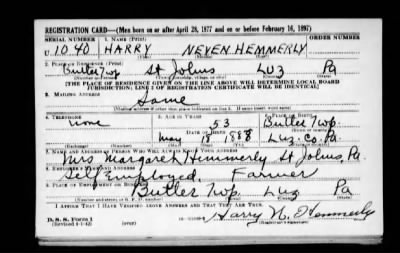 REGISTRATION CARD—(Men born on or after April 28, 1877 and on or before February 16, 1897)
SERIAL NUMBER 1. NAME (Print) ORDER NUMBER
U 1040 HARRY NEVEN HEMMERLY
2. PLACE OF RESIDENCE (Print)
Butler Twp St Johns LUZ Pa
[THE PLACE OF RESIDENCE GIVEN ON THE LINE ABOVE WILL DETERMINE LOCAL BOARD
JURISDICTION; LINE 2 OF REGISTRATION CERTIFICATE WILL BE IDENTICAL]
3. MAILING ADDRESS
Same
4. TELEPHONE 5. AGE IN YEARS 6. PLACE OF BIRTH
none 53 Butler Twp.
DATE OF BIRTH
May 18 1888 Luz. Co. Pa
7. NAME AND ADDRESS OF PERSON WHO WILL ALWAYS KNOW YOUR ADDRESS
Mrs Margaret Hemmerly St Johns, Pa.
8. EMPLOYER'S NAME AND ADDRESS
Self Employed, Farmer
9. PLACE OF EMPLOYMENT OR BUSINESS
Butler Twp. Luz Pa
I AFFIRM THAT I HAVE VERIFIED ABOVE ANSWERS AND THAT THEY ARE TRUE.
D. S. S. Form 1
(Revised 4-1-42)
Harry N. Hemmerly